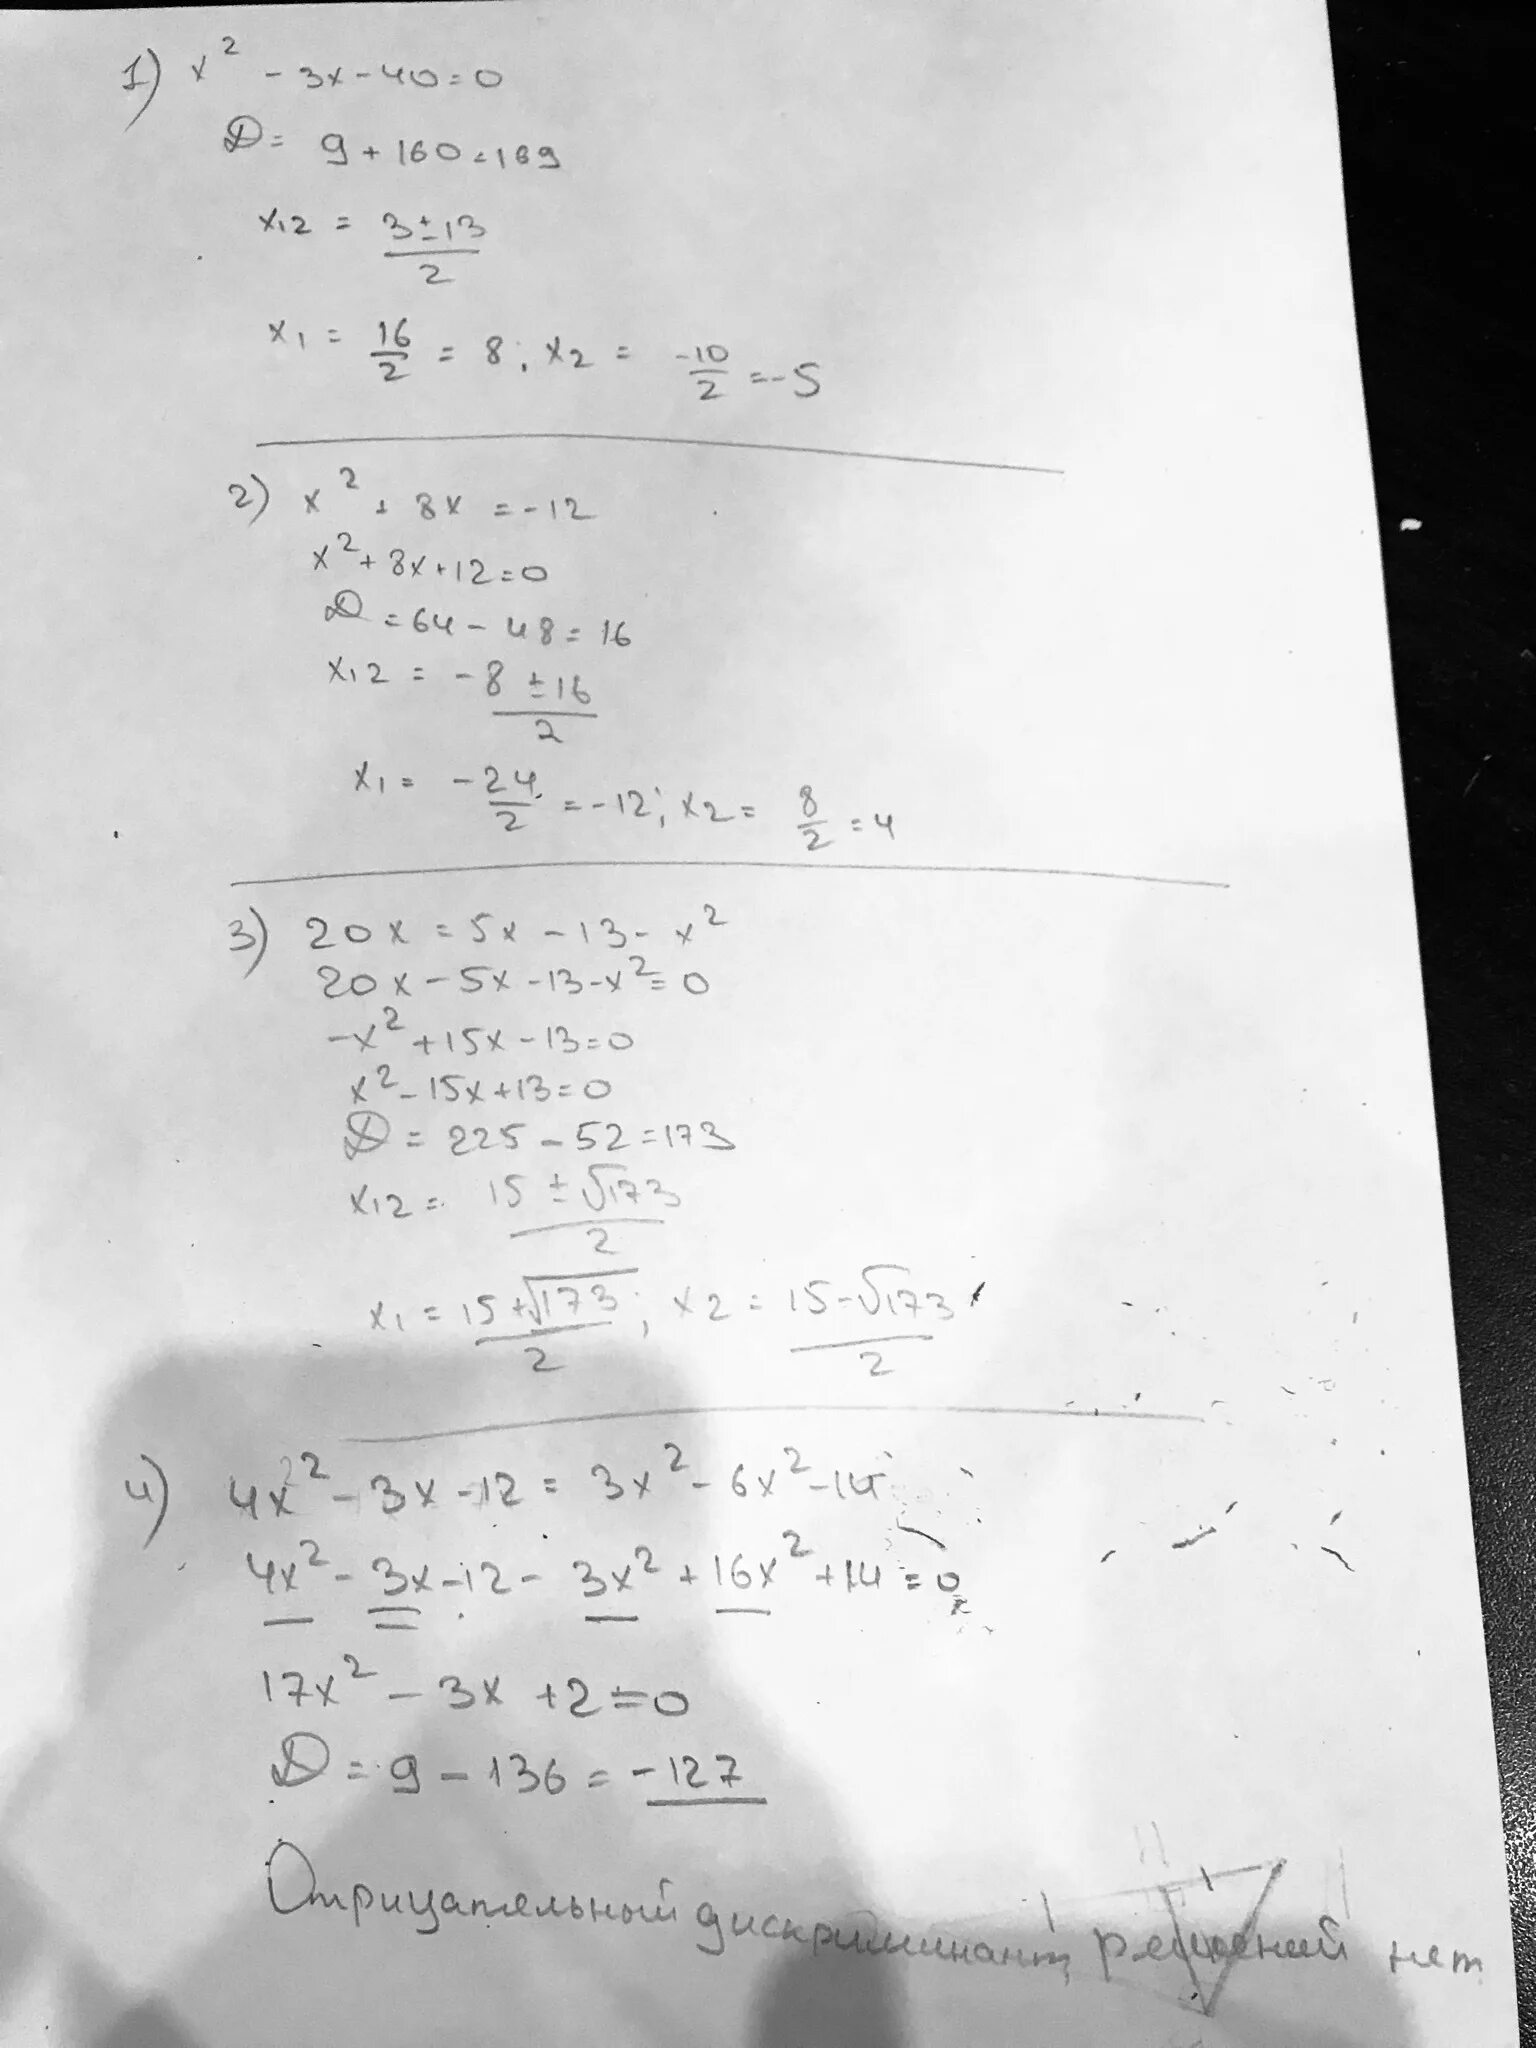 1) x² - 3x - 40 = 0
D = 9 + 160 = 169
x12 = (3 ± 13)/2
x1 = 16/2 = 8; x2 = -10/2 = -5
2) x² + 8x = -12
x² + 8x + 12 = 0
D = 64 - 48 = 16
x12 = (-8 ± 16)/2
x1 = -24/2 = -12; x2 = 8/2 = 4
3) 20x = 5x - 13 - x²
20x - 5x - 13 - x² = 0
-x² + 15x - 13 = 0
x² - 15x + 13 = 0
D = 225 - 52 = 173
x12 = (15 ± √173)/2
x1 = (15 + √173)/2; x2 = (15 - √173)/2
4) 4x² - 3x - 12 = 3x² - 6x² - 14
4x² - 3x - 12 - 3x² + 16x² + 14 = 0
17x² - 3x + 2 = 0
D = 9 - 136 = -127
Отрицательный дискриминант, решений нет